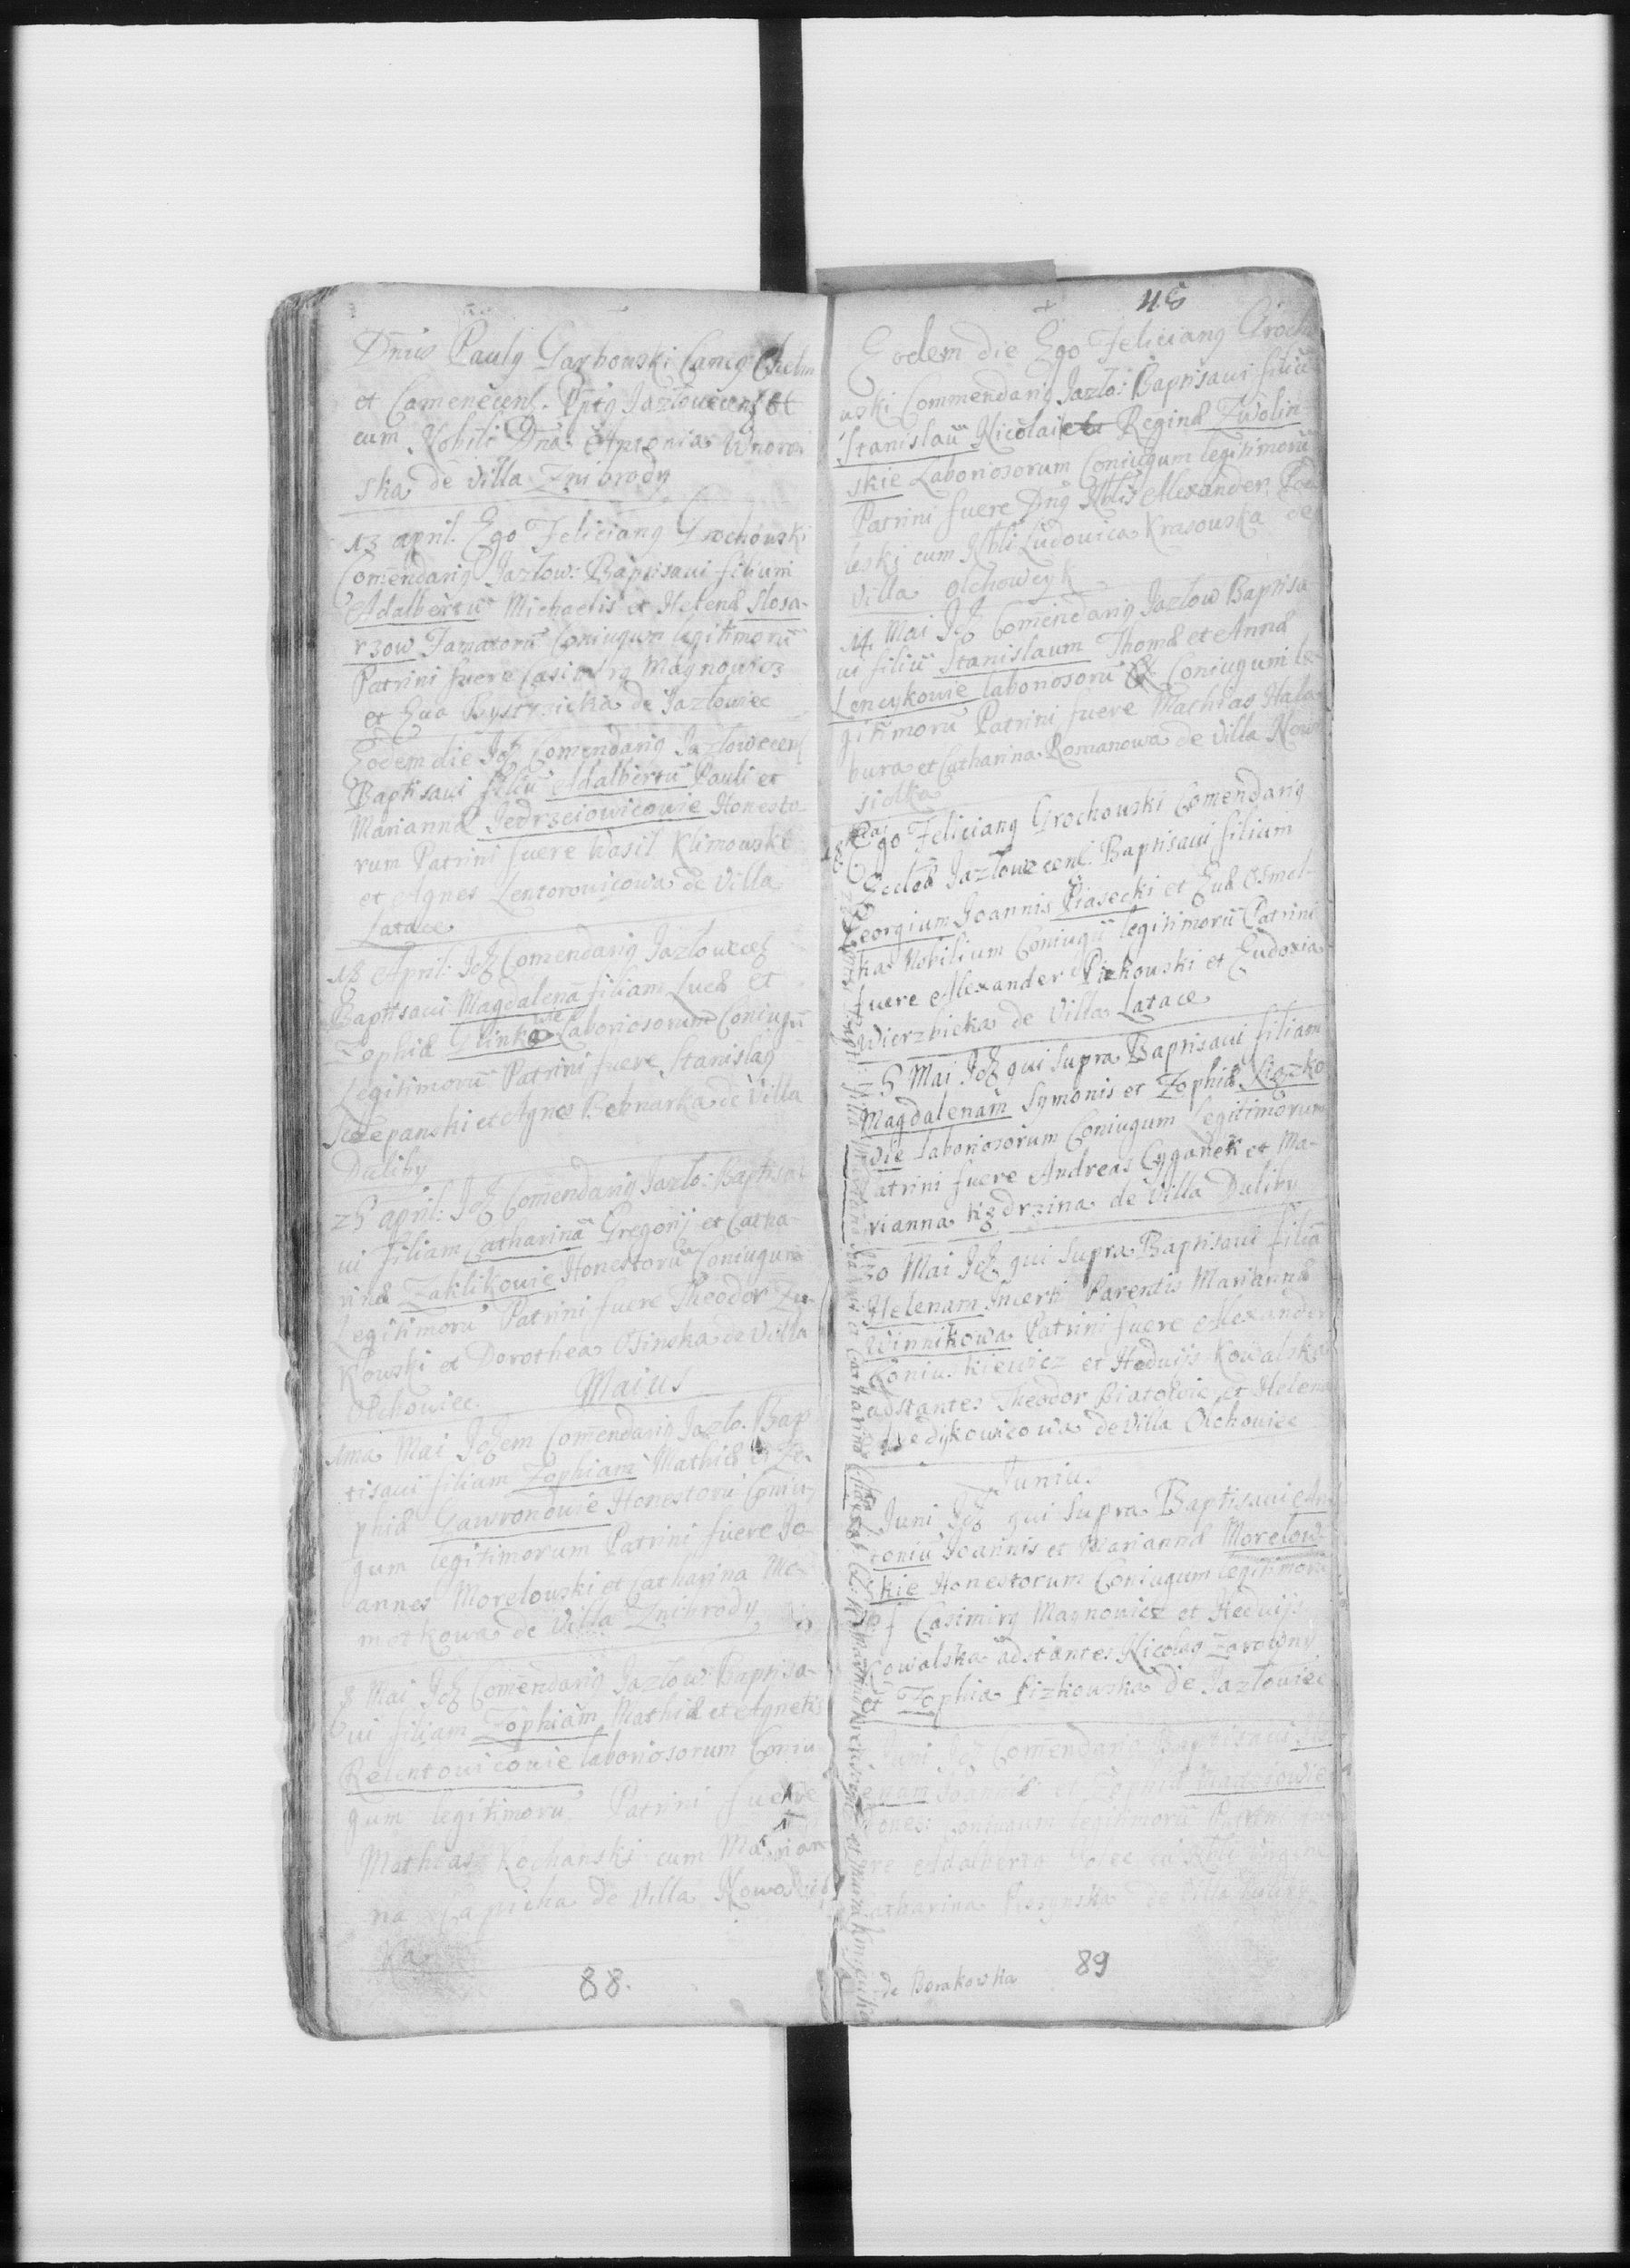 Dnus Pauly Garbowski Cancg Chelm
et Camenecens. Pptg Jazlovecens et
cum Nobili Dna Antonia Wnorow
ska de Villa Znibrody
13 april. Ego Feliciang Grochowski
Comendarig Jazlow: Baptisavi filium
Adalbertū Michaelis et Helenæ Slosa-
rzow Famatorū Coniugum legitimorū
Patrini fuere Casimirg Magnowicz
et Eva Bystrzicka de Jazlowiec
Eodem die Idē Comendarig Jazlowecens
Baptisavi filiū Adalbertū Pauli et
Mariannæ Jedrzeiowicowie Honesto-
rum Patrini fuere Wasil Klimowski
et Agnes Lentorowicowa de Villa
Latace
18 April: Idē Comendarig Jazloweces
Baptisavi Magdalenā filiam Lucæ et
Zophiæ Glinka Laboriosorum Coniugū
Legitimorū Patrini fuere Stanislag
Sczepanski et Agnes Bednarka de Villa
Duliby
25 april: Idē Comendarig Jazlo: Baptisa
vi filiam Catharinā Gregorij et Catha-
rinæ Zaklikowie Honestorū Coniugum
Legitimorū Patrini fuere Theodor Zu-
kowski et Dorothea Osinska de Villa
Olchowiec.
Maius
1ma Mai Idem Comendarig Jazlo. Bap
tisavi filiam Zophiam Mathiæ et Zo-
phiæ Gawronowie Honestorū Coniu-
gum legitimorum Patrini fuere Jo-
annes Morelowski et Catharina Me-
metkowa de Villa Znibrody
8 Mai Idē Comendarig Jazlow: Baptisa-
vi filiam Zophiam Mathiæ et Agnetis
Relentowicowie laboriosorum Coniu
gum legitimorū Patrini fuere
Mathias Kochanski cum Marian
na Capicka de Villa Nowosiol
ka
88.
48
Eodem die Ego Feliciang Groch
wski Commendarig Jazlo: Baptisavi filiū
Stanislaū Nicolai et Reginæ Zwolin-
skie Laboriosorum Coniugum legitimorū
Patrini fuere Dng Nblis Alexander
leski cum Nbli Ludovica Krasowska de
Villa Olchowcyk
14 Mai Idē Comendarig Jazlow Baptisa
vi filiū Stanislaum Thomæ et Annæ
Lencykowie laboriosorū Coniugum le-
gitimorū Patrini fuere Mathias Hala
bura et Catharina Romanowa de Villa Now
siolka
18 Mai Ego Feliciang Grochowski Comendarig
Eccles Jazlowecens. Baptisavi filium
Georgium Joannis Piasecki et Evæ Osmol-
ska Nobilium Coniugū legitimorū Patrini
fuere Alexander Pizkowski et Eudoxia
Wierzbicka de Villa Latace
25 Mai Idē qui supra Baptisavi filiam
Magdalenam Symonis et Zophiæ
wie laboriosorum Coniugum legitimorum
Patrini fuere Andreas Cyganek et Ma-
rianna Kędrzina de Villa Duliby
30 Mai Idē qui supra Baptisavi filiā
Helenam Incerti Parentis Mariannæ
Winnikowa Patrini fuere Alexander
Coniuskiewicz et Hedvijs Kowalska
adstantes Theodor Bialowic et Helena
Dedykowicowa de Villa Olchowiec
Junius
Juni Idē qui supra Baptisavi An
toniū Joannis et Mariannæ Morelow-
skie Honestorum Coniugum legitimorū
Casimirg Magnowicz et Hedvijs
Kowalska adstantes Nicolag Zarowny
et Zophia Pizkowska de Jazlowiec
Juni Idē Comendarig Baptisavi
Joannis et Zophiæ Maciciowie
Hones: Coniugum legitimorū Patrini fu-
ere Adalbertg
Catharina de Villa Duliby
de Berakowka
89